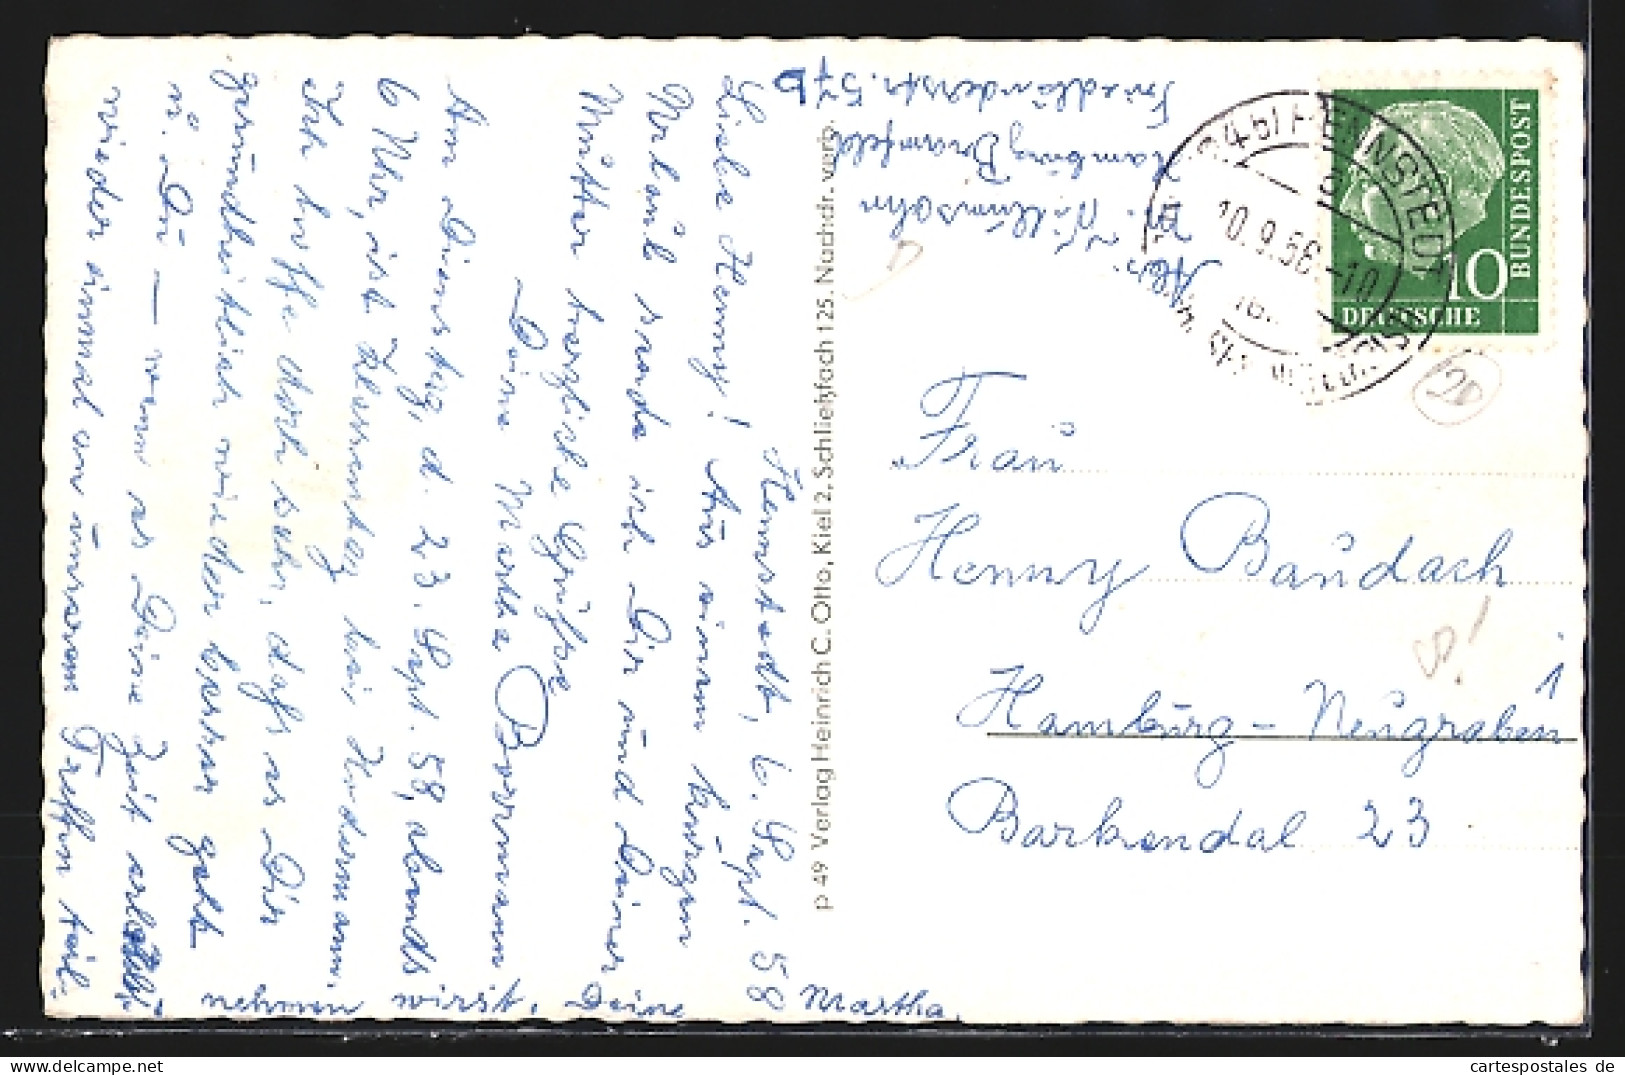 Hennstedt, 6. Sept. 58
Liebe Henny! Aus einem kurzen
Urlaub sende ich Dir und Deiner
Mutter herzliche Grüße
Deine Martha Bornemann
Am Dienstag, d. 23. Sept. 58, abends
6 Uhr, ist Klassentag bei
Ich hoffe doch sehr, daß es Dir
gesundheitlich wieder besser geht
u. Du – wenn es Deine Zeit erlaubt –
wieder einmal an unserem Treffen teil-
nehmen wirst. Deine Martha.
p 49 Verlag Heinrich C. Otto, Kiel 2, Schließfach 125. Nachdr. verb.
Hamburg Bramfeld
Friedländerstr. 57b
HENNSTEDT
10.9.58.-10
10
BUNDESPOST
DEUTSCHE
Frau
Henny Baudach
Hamburg-Neugraben 1
Barkendal 23
cartespostales de